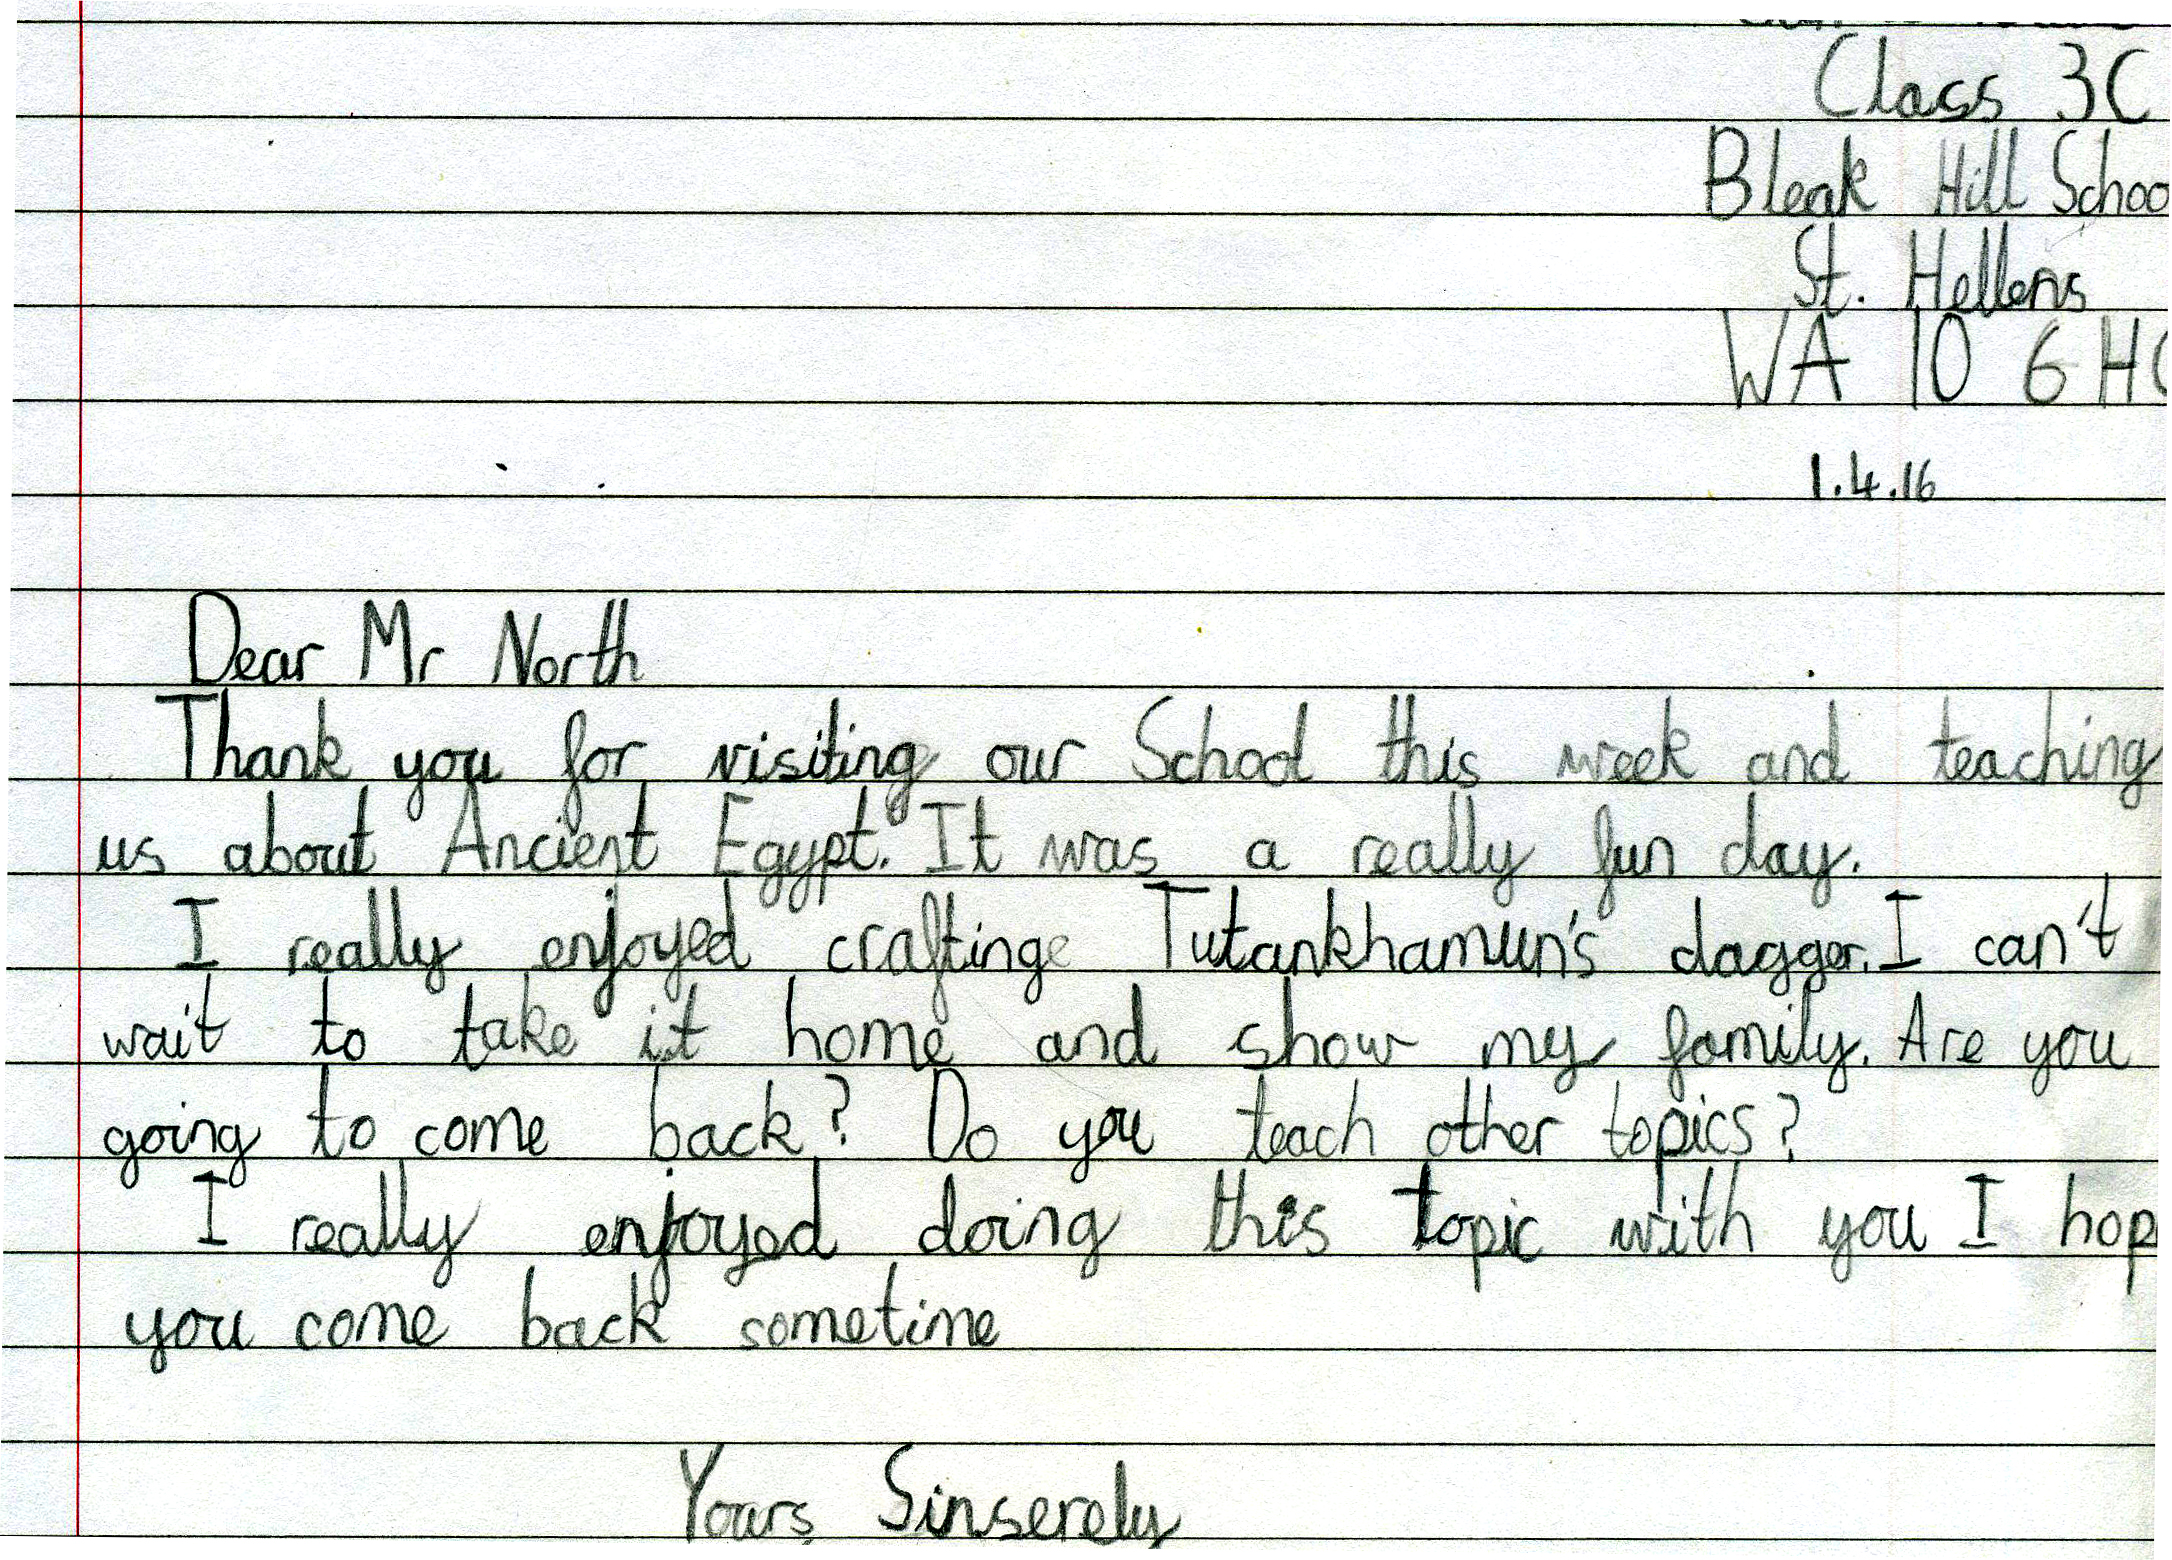 Class 3C
Bleak Hill Schoo
St. Hellens
WA 10 6 H
1.4.16
Dear Mr North
Thank you for visiting our School this week and teaching
us about Ancient Egypt. It was a really fun day.
I really enjoyed craftinge Tutankhamun's dagger. I can't
wait to take it home and show my family. Are you
going to come back? Do you teach other topics?
I really enjoyed doing this topic with you I hop
you come back sometime
Yours Sinserely